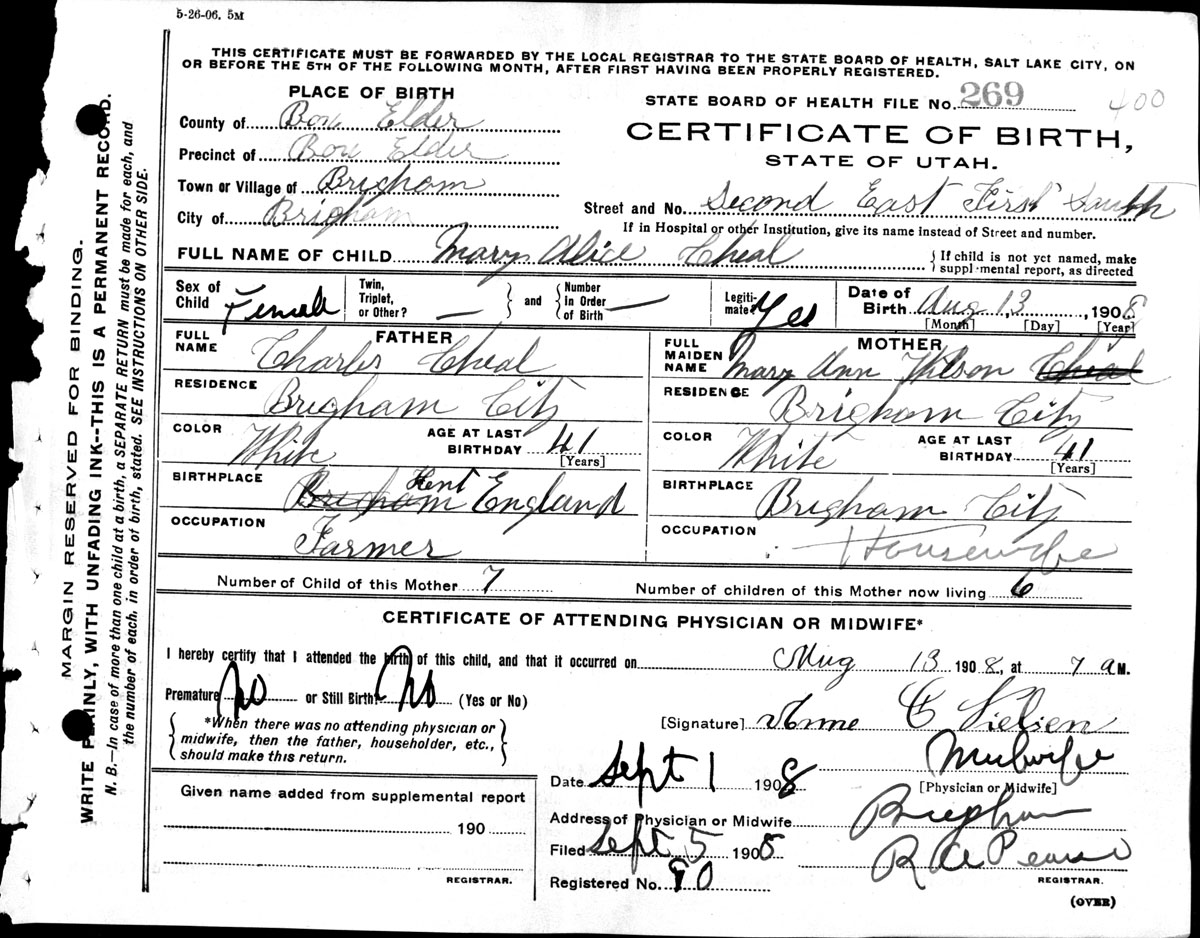 5-26-06. 5M
THIS CERTIFICATE MUST BE FORWARDED BY THE LOCAL REGISTRAR TO THE STATE BOARD OF HEALTH, SALT LAKE CITY, ON
OR BEFORE THE 5TH OF THE FOLLOWING MONTH, AFTER FIRST HAVING BEEN PROPERLY REGISTERED.
PLACE OF BIRTH
County of Box Elder
Precinct of Box Elder
Town or Village of Brigham
City of Brigham
STATE BOARD OF HEALTH FILE No. 269 400
CERTIFICATE OF BIRTH,
STATE OF UTAH.
Street and No. Second East First South
If in Hospital or other Institution, give its name instead of Street and number.
FULL NAME OF CHILD Mary Alice Cheal
{ If child is not yet named, make
suppl·mental report, as directed
Sex of Child Female
Twin, Triplet, or Other? —
and
Number In Order of Birth —
Legiti-mate? Yes
Date of Birth Aug 13, 1908
[Month] [Day] [Year]
FATHER
FULL NAME Charles Cheal
RESIDENCE Brigham City
COLOR White AGE AT LAST BIRTHDAY 41
[Years]
BIRTHPLACE Brigham Kent England
OCCUPATION Farmer
MOTHER
FULL MAIDEN NAME Mary Ann Wilson Cheal
RESIDENCE Brigham City
COLOR White AGE AT LAST BIRTHDAY 41
[Years]
BIRTHPLACE Brigham City
OCCUPATION Housewife
Number of Child of this Mother 7 Number of children of this Mother now living 6
CERTIFICATE OF ATTENDING PHYSICIAN OR MIDWIFE*
I hereby certify that I attended the birth of this child, and that it occurred on Aug 13 1908, at 7 a M.
Premature No or Still Birth? No (Yes or No)
{ *When there was no attending physician or
midwife, then the father, householder, etc.,
should make this return. }
[Signature] C
Midwife
[Physician or Midwife]
Date Sept 1 1908
Address of Physician or Midwife Brigham
Filed Sept 5 1908
REGISTRAR.
Registered No. 90
(OVER)
Given name added from supplemental report
190
REGISTRAR.
MARGIN RESERVED FOR BINDING.
WRITE PLAINLY, WITH UNFADING INK--THIS IS A PERMANENT RECORD.
N. B.—In case of more than one child at a birth, a SEPARATE RETURN must be made for each, and
the number of each, in order of birth, stated. SEE INSTRUCTIONS ON OTHER SIDE.